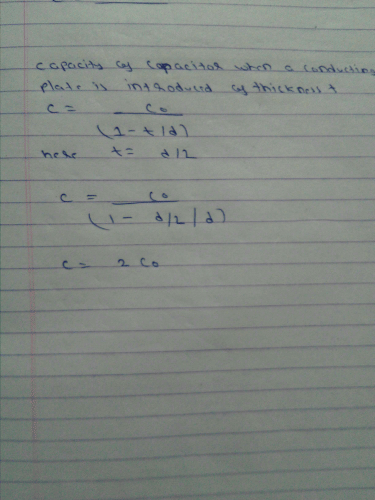 capacity of capacitor when a conducting
plate is introduced of thickness t
c = co
(1 - t/d)
here t = d/2
c = co
(1 - d/2/d)
c = 2 co